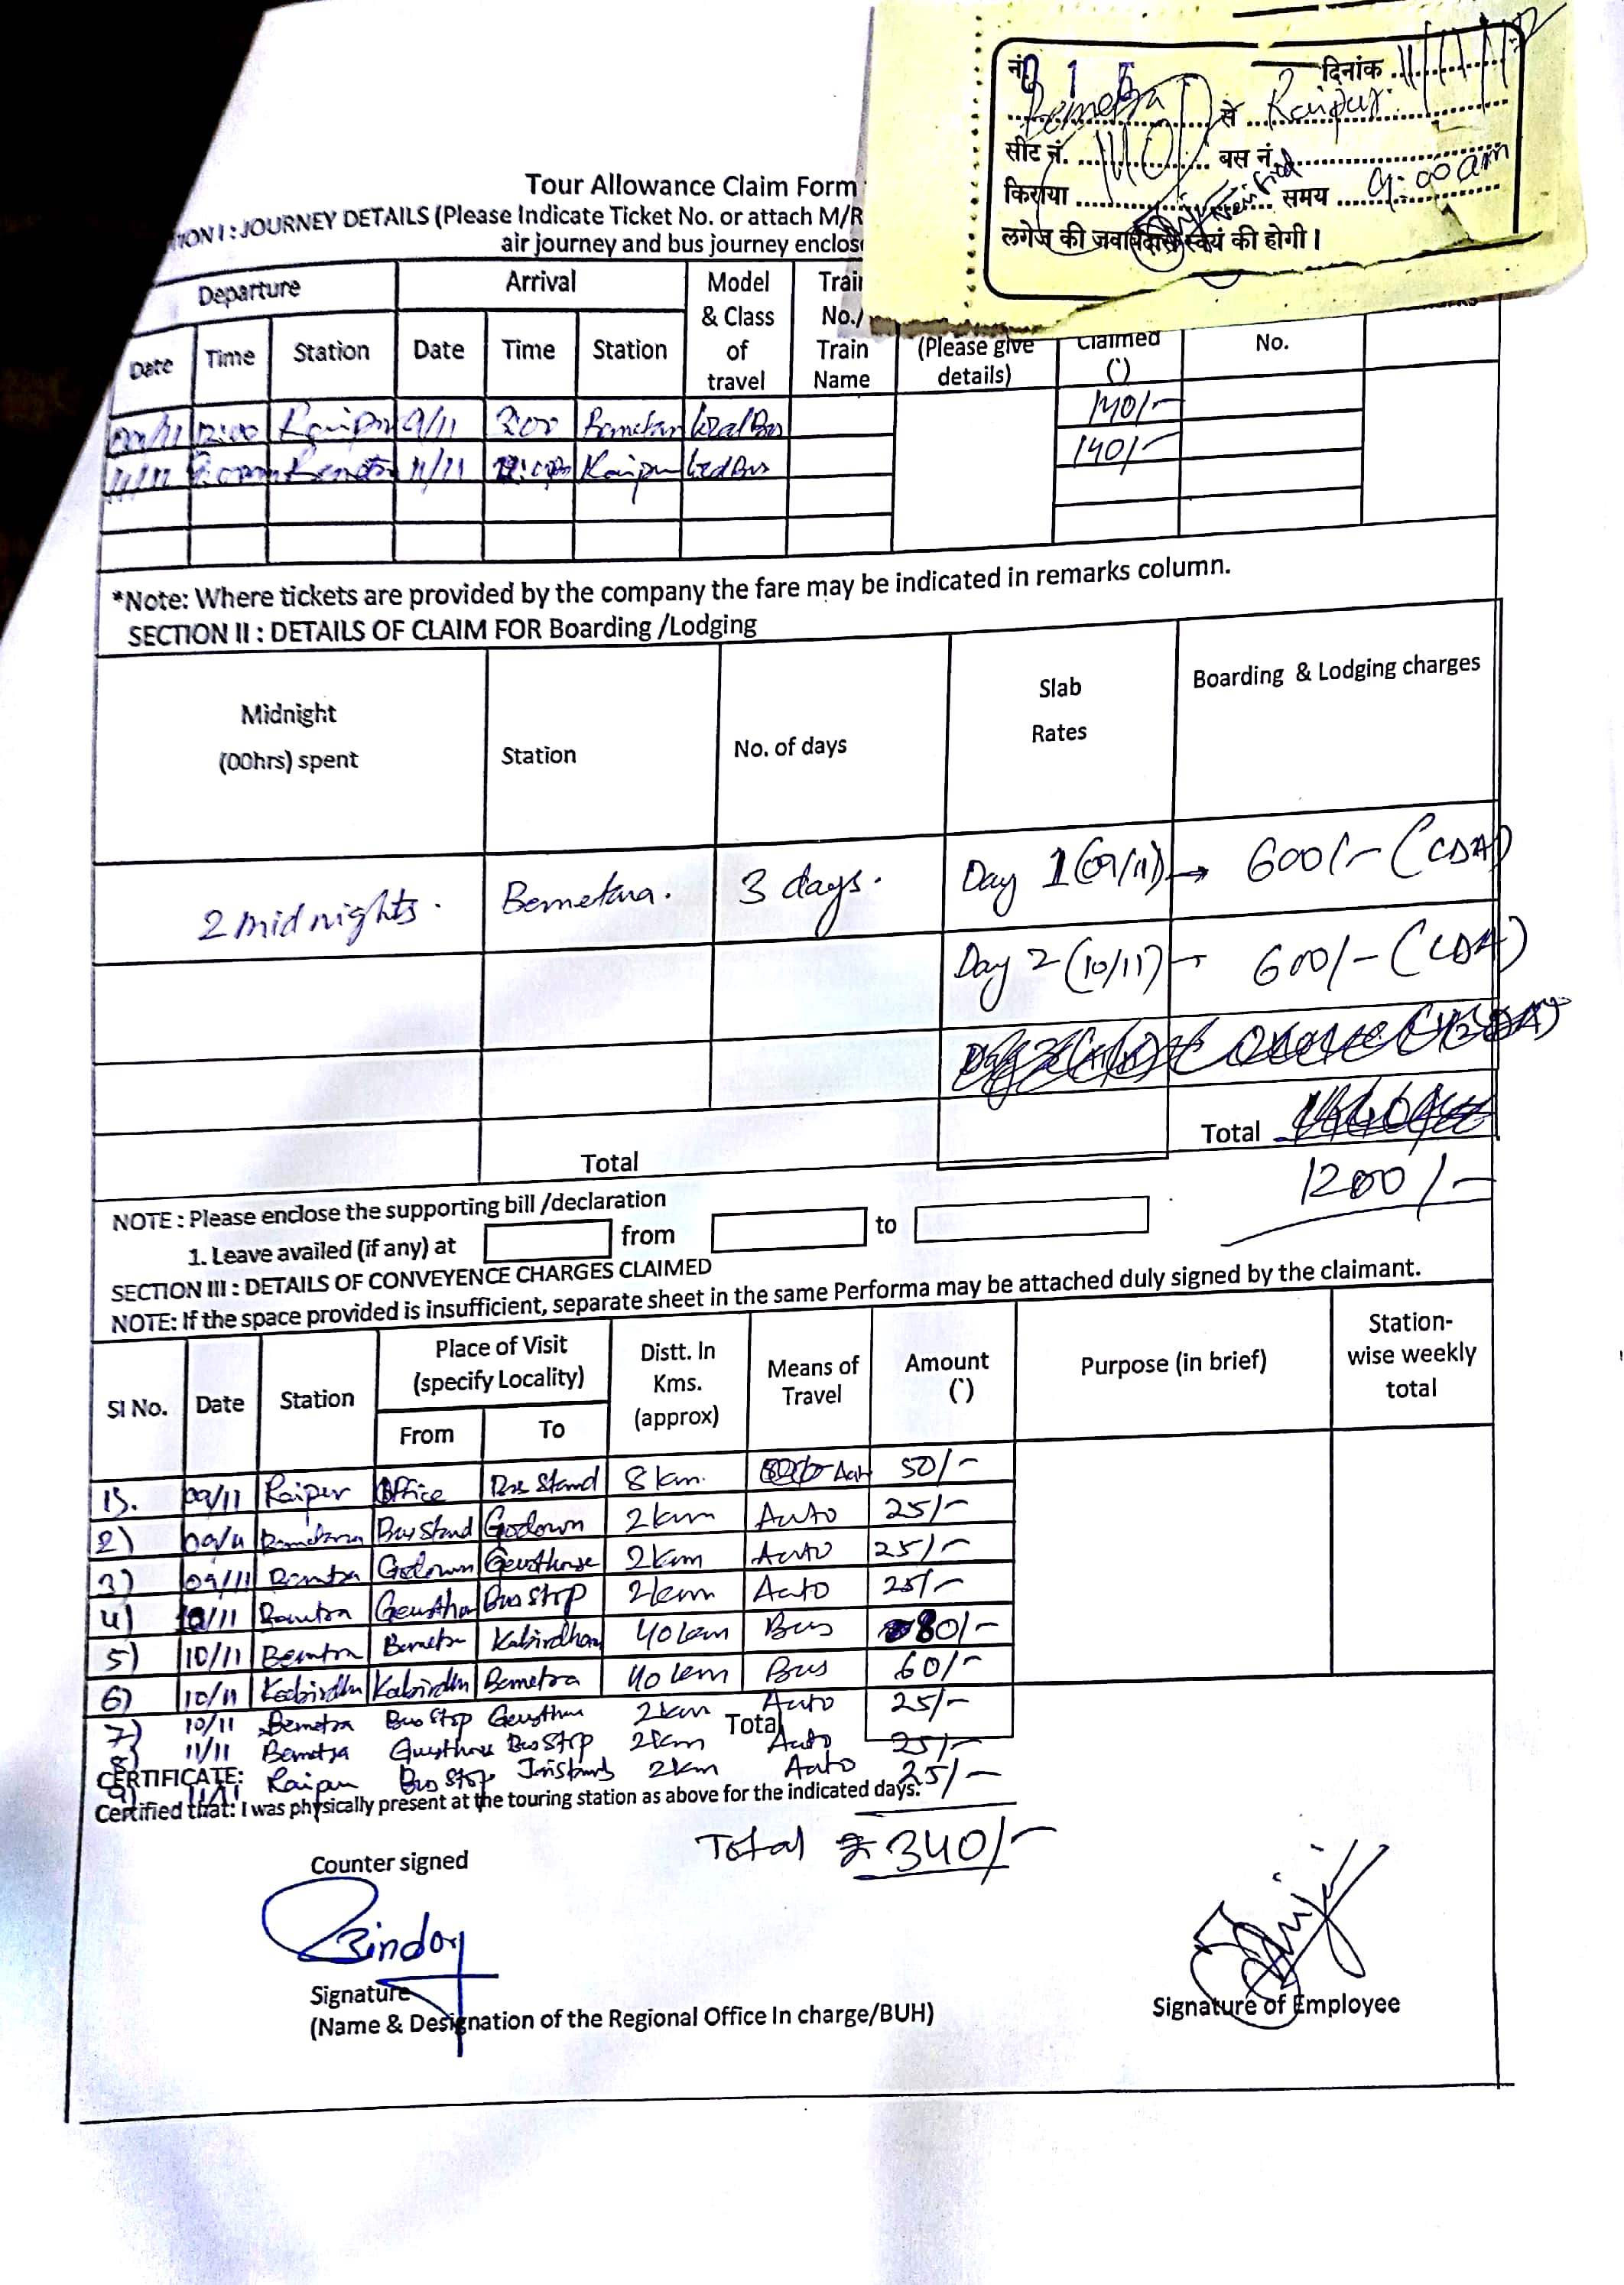 नं. 0 1 5 दिनांक 11/11/12
Bemetra से Raipur
सीट नं. 140/ बस नं.
किराया समय 9:00am
लगेज की जवाबदारी स्वयं की होगी।
Tour Allowance Claim Form
TION I : JOURNEY DETAILS (Please Indicate Ticket No. or attach M/R
air journey and bus journey enclos
Departure Arrival Model & Class of travel Train No./ Train Name (Please give details) Claimed (`) No.
Date Time Station Date Time Station
12:00 Raipur 9/11 3:00 Bemetara Local Bus 140/-
11/11 11/11 Raipur Local Bus 140/-
*Note: Where tickets are provided by the company the fare may be indicated in remarks column.
SECTION II : DETAILS OF CLAIM FOR Boarding /Lodging
Midnight (00hrs) spent Station No. of days Slab Rates Boarding & Lodging charges
2 midnights. Bemetara. 3 days. Day 1 (09/11) → 600/- (CDA)
Day 2 (10/11) → 600/- (CDA)
Total
Total
1200/-
NOTE : Please enclose the supporting bill /declaration
1. Leave availed (if any) at from to
SECTION III : DETAILS OF CONVEYENCE CHARGES CLAIMED
NOTE: If the space provided is insufficient, separate sheet in the same Performa may be attached duly signed by the claimant.
Sl No. Date Station Place of Visit (specify Locality) Distt. In Kms. (approx) Means of Travel Amount (`) Purpose (in brief) Station-wise weekly total
From To
1). 09/11 Raipur Office Bus Stand 8 km. Auto 50/-
2) 09/11 Bemetara Bus Stand Godown 2 km Auto 25/-
3) 09/11 Bemetra Godown Guesthouse 2 km Auto 25/-
4) 10/11 Bemetra Guesthou Bus Stop 2 km Auto 25/-
5) 10/11 Bemetra Bemetra Kabirdham 40 km Bus 80/-
6) 10/11 Kabirdhm Kabirdhm Bemetra 40 km Bus 60/-
7) 10/11 Bemetra Bus Stop Guesthou 2 km Auto 25/-
Total
8) 11/11 Bemetra Guesthouse Bus Stop 2 km Auto 25/-
9) 11/11 Raipur Bus Stop 2 km Auto 25/-
CERTIFICATE:
Certified that: I was physically present at the touring station as above for the indicated days.
Total ₹ 340/-
Counter signed
Signature
(Name & Designation of the Regional Office In charge/BUH)
Signature of Employee